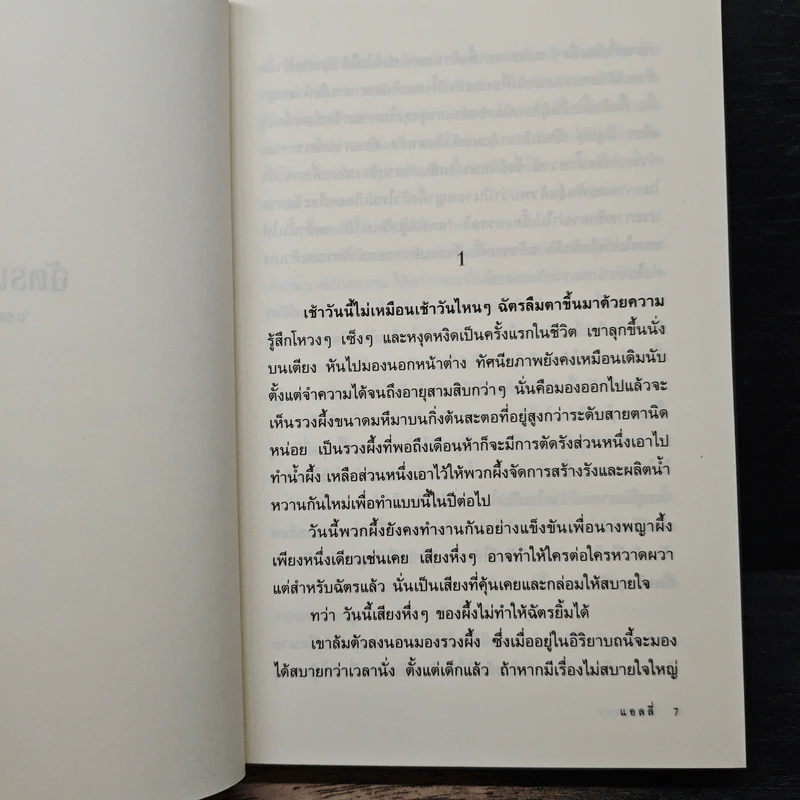 1
เช้าวันนี้ไม่เหมือนเช้าวันไหนๆ ฉัตรลืมตาขึ้นมาด้วยความ
รู้สึกโหวงๆ เซ็งๆ และหงุดหงิดเป็นครั้งแรกในชีวิต เขาลุกขึ้นนั่ง
บนเตียง หันไปมองนอกหน้าต่าง ทัศนียภาพยังคงเหมือนเดิมนับ
ตั้งแต่จำความได้จนถึงอายุสามสิบกว่าๆ นั่นคือมองออกไปแล้วจะ
เห็นรวงผึ้งขนาดมหึมาบนกิ่งต้นสะตอที่อยู่สูงกว่าระดับสายตานิด
หน่อย เป็นรวงผึ้งที่พอถึงเดือนห้าก็จะมีการตัดรังส่วนหนึ่งเอาไป
ทำน้ำผึ้ง เหลือส่วนหนึ่งเอาไว้ให้พวกผึ้งจัดการสร้างรังและผลิตน้ำ
หวานกันใหม่เพื่อทำแบบนี้ในปีต่อไป
วันนี้พวกผึ้งยังคงทำงานกันอย่างแข็งขันเพื่อนางพญาผึ้ง
เพียงหนึ่งเดียวเช่นเคย เสียงหึ่งๆ อาจทำให้ใครต่อใครหวาดผวา
แต่สำหรับฉัตรแล้ว นั่นเป็นเสียงที่คุ้นเคยและกล่อมให้สบายใจ
ทว่า วันนี้เสียงหึ่งๆ ของผึ้งไม่ทำให้ฉัตรยิ้มได้
เขาล้มตัวลงนอนมองรวงผึ้ง ซึ่งเมื่ออยู่ในอิริยาบถนี้จะมอง
ได้สบายกว่าเวลานั่ง ตั้งแต่เด็กแล้ว ถ้าหากมีเรื่องไม่สบายใจใหญ่
แอลลี่ 7